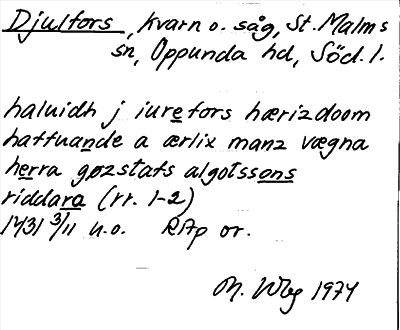 Djulfors, kvarn o. såg, St. Malms
sn, Oppunda hd, Söd. l.
haluidh j iurefors hærizdoom
haffuande a ærlix manz vægna
herra gøzstafs algotssons
riddara (rr. 1-2)
1431 3/11 u.o. RAp or.
M. Wbg 1974